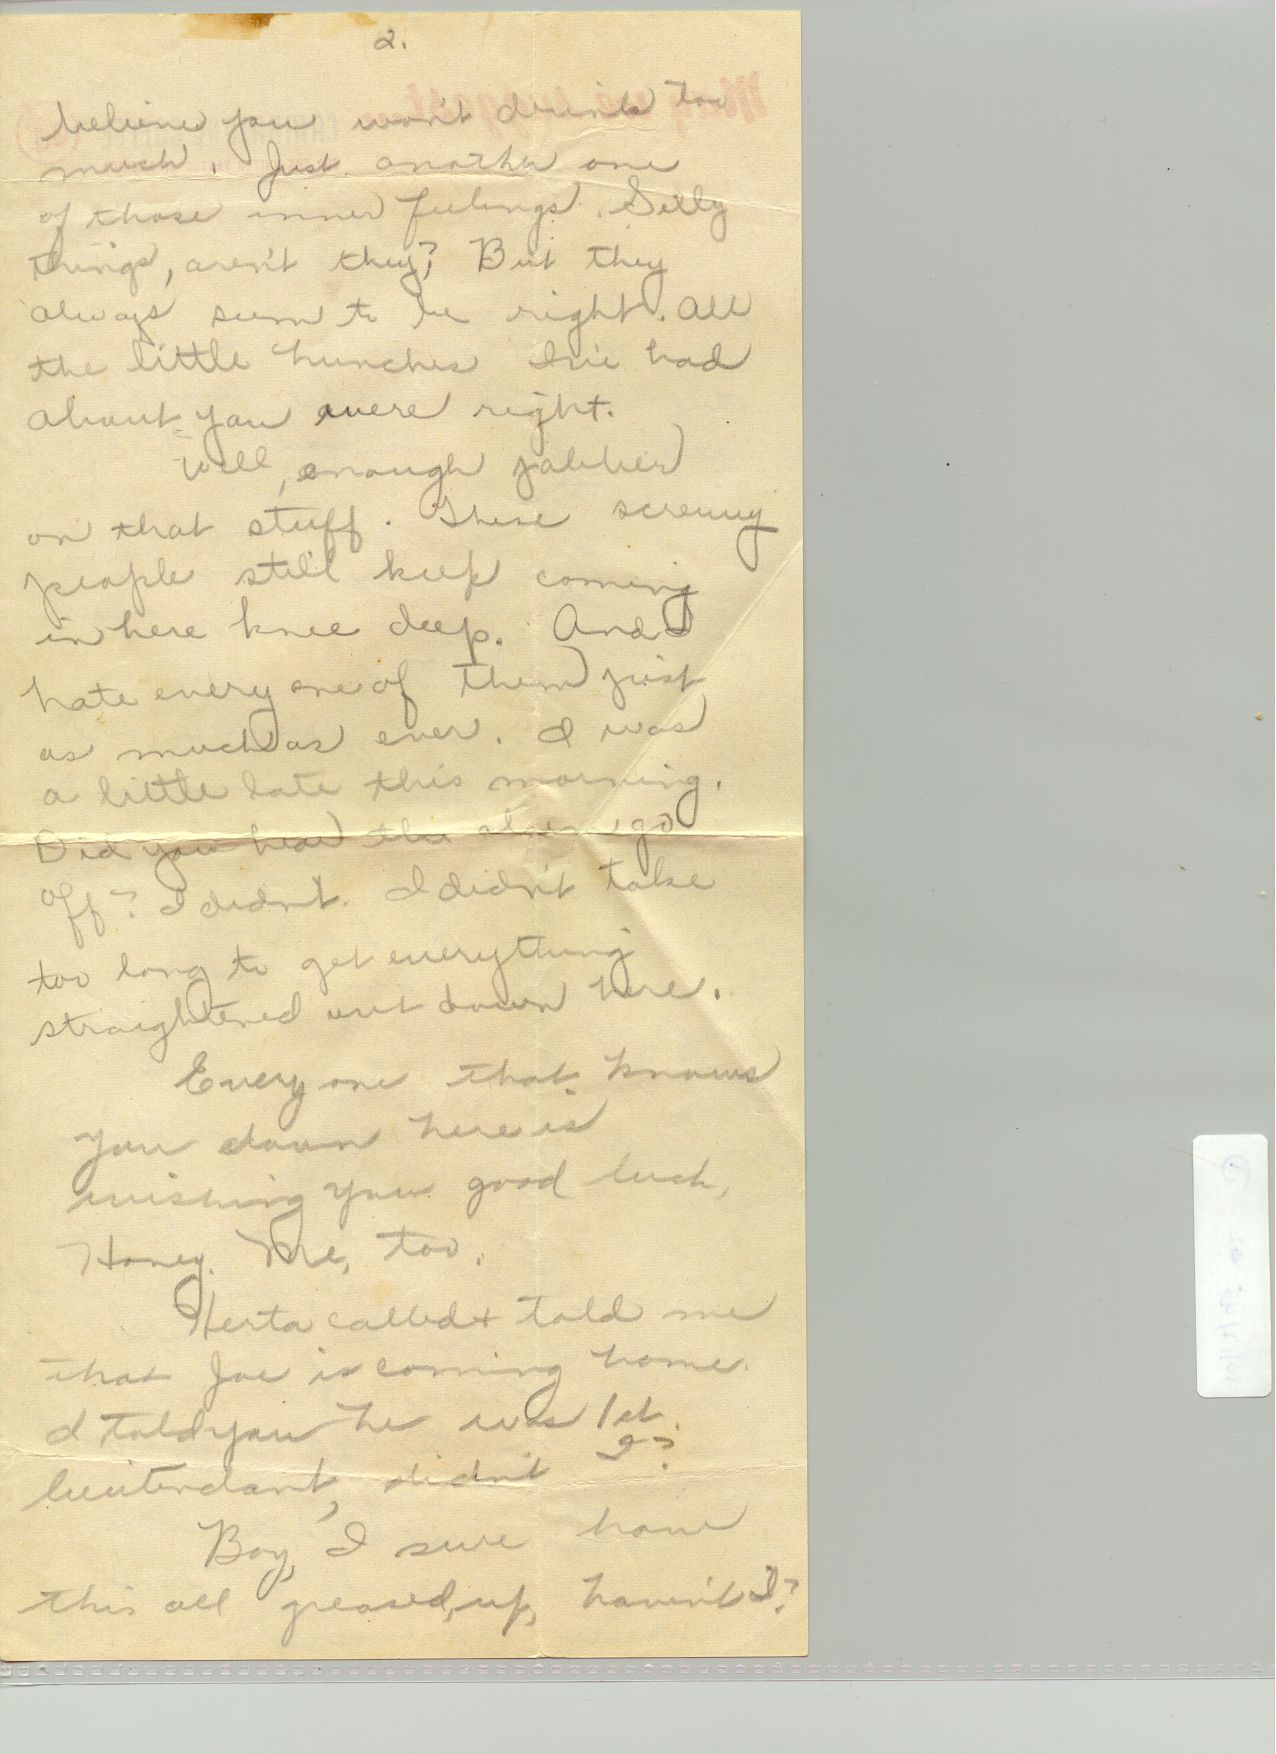 2.
believe you won't drink too
much. Just another one
of those inner feelings. Silly
things, aren't they? But they
always seem to be right. All
the little hunches I've had
about you were right.
Well, enough jabber
on that stuff. These screwy
people still keep coming
in here knee deep. And I
hate every one of them just
as much as ever. I was
a little late this morning.
Did you hear the alarm go
off? I didn't. I didn't take
too long to get everything
straightened out down here.
Every one that knows
you down here is
wishing you good luck,
Honey. Me, too.
Herta called & told me
that Joe is coming home.
I told you he was 1st
lieutendant, didn't I?
Boy, I sure have
this all greased up, haven't I?